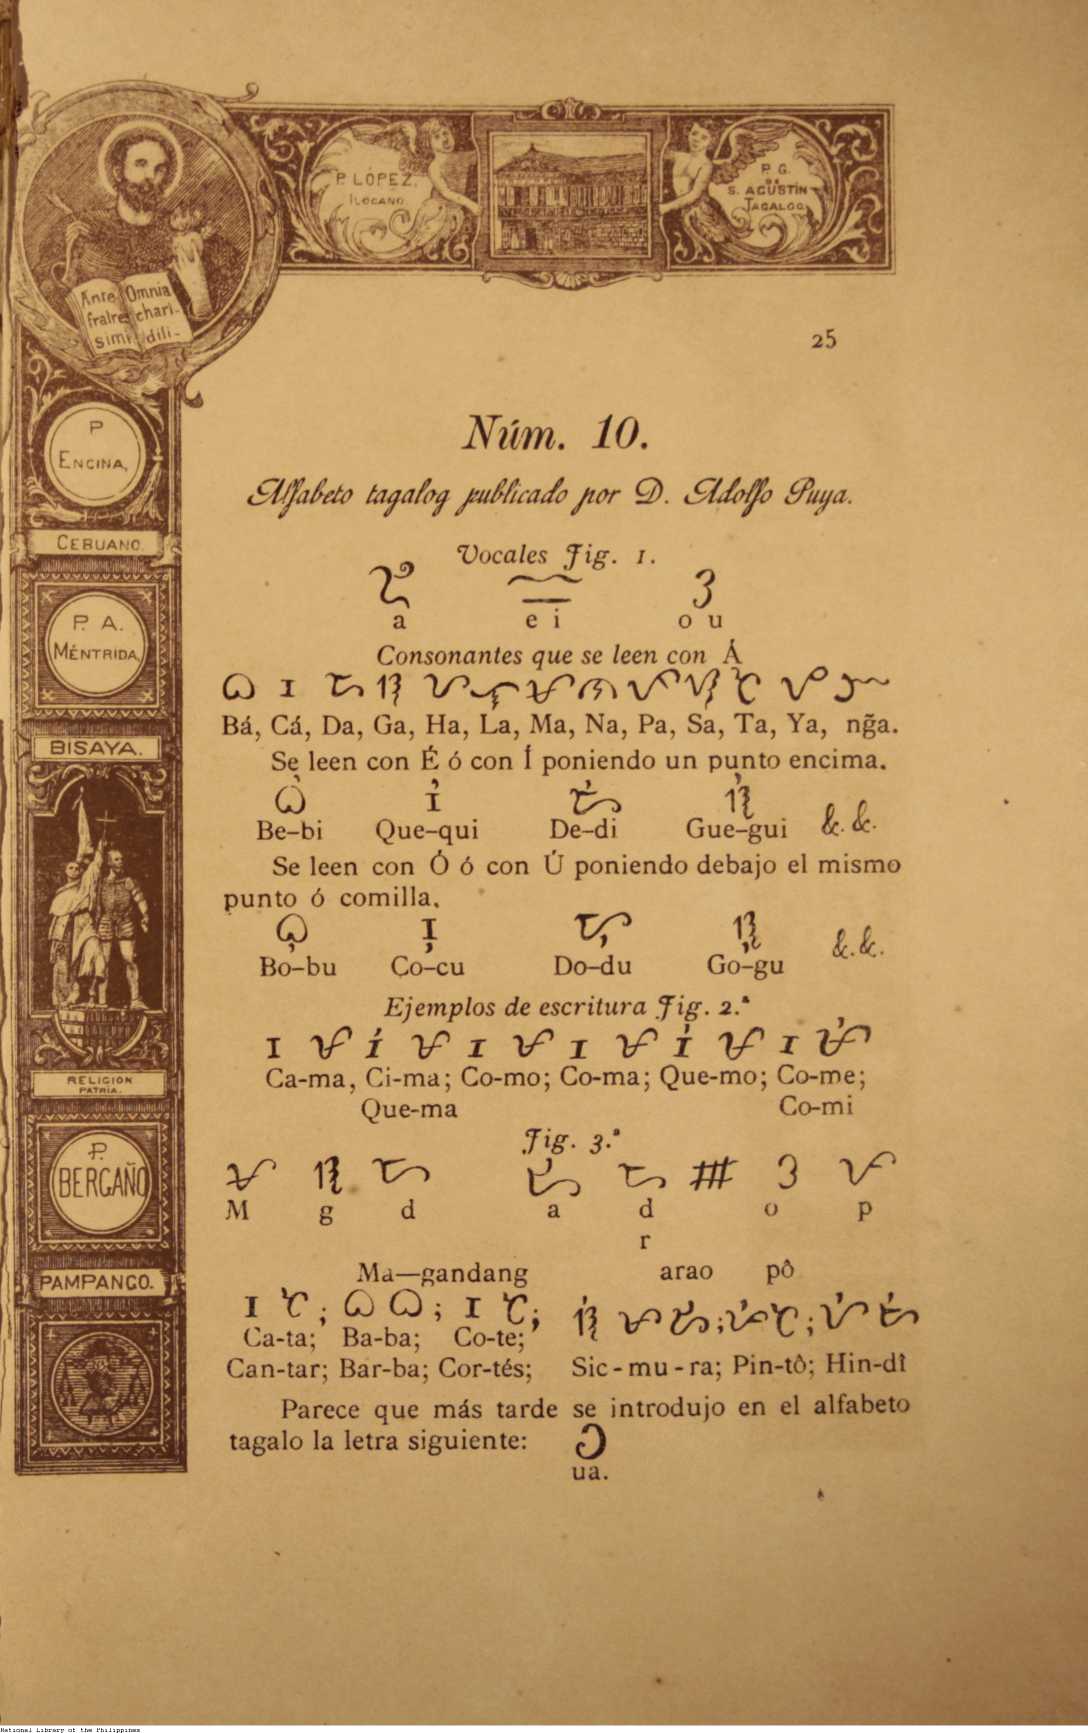 P. LÓPEZ.
ILOCANO
P. G.
DE
S. AGUSTÍN
TAGALOG
Ante Omnia
fratres chari-
simi dili-
25
P
ENCINA,
CEBUANO.
P. A.
MÉNTRIDA,
BISAYA.
RELIGION
PATRIA.
P.
BERGAÑO
PAMPANGO.
Núm. 10.
Alfabeto tagalog publicado por D. Adolfo Puya.
Vocales Fig. 1.
ᜀ ᜁ ᜂ
a e i o u
Consonantes que se leen con Á
ᜊ ᜃ ᜇ ᜄ ᜑ ᜎ ᜋ ᜈ ᜉ ᜐ ᜆ ᜌ ᜅ
Bá, Cá, Da, Ga, Ha, La, Ma, Na, Pa, Sa, Ta, Ya, ng̃a.
Se leen con É ó con Í poniendo un punto encima.
ᜊᜒ ᜃᜒ ᜇᜒ ᜄᜒ &. &.
Be–bi Que–qui De–di Gue–gui
Se leen con Ó ó con Ú poniendo debajo el mismo
punto ó comilla.
ᜊᜓ ᜃᜓ ᜇᜓ ᜄᜓ &. &.
Bo–bu Co–cu Do–du Go–gu
Ejemplos de escritura Fig. 2.ª
ᜃ ᜋ ᜃᜒ ᜋ ᜃ ᜋ ᜃ ᜋ ᜃᜒ ᜋ ᜃ ᜋᜒ
Ca-ma, Ci-ma; Co-mo; Co-ma; Que-mo; Co-me;
Que-ma Co-mi
Fig. 3.ª
ᜋ ᜄ ᜇ ᜀ ᜇ ᜂ ᜉ
M g d a d o p
r
Ma—gandang arao pô
ᜃ ᜆ ; ᜊ ᜊ ; ᜃ ᜆ ;
Ca-ta; Ba-ba; Co-te;
Can-tar; Bar-ba; Cor-tés; Sic-mu-ra; Pin-tô; Hin-dî
Parece que más tarde se introdujo en el alfabeto
tagalo la letra siguiente:
ua.
National Library of the Philippines